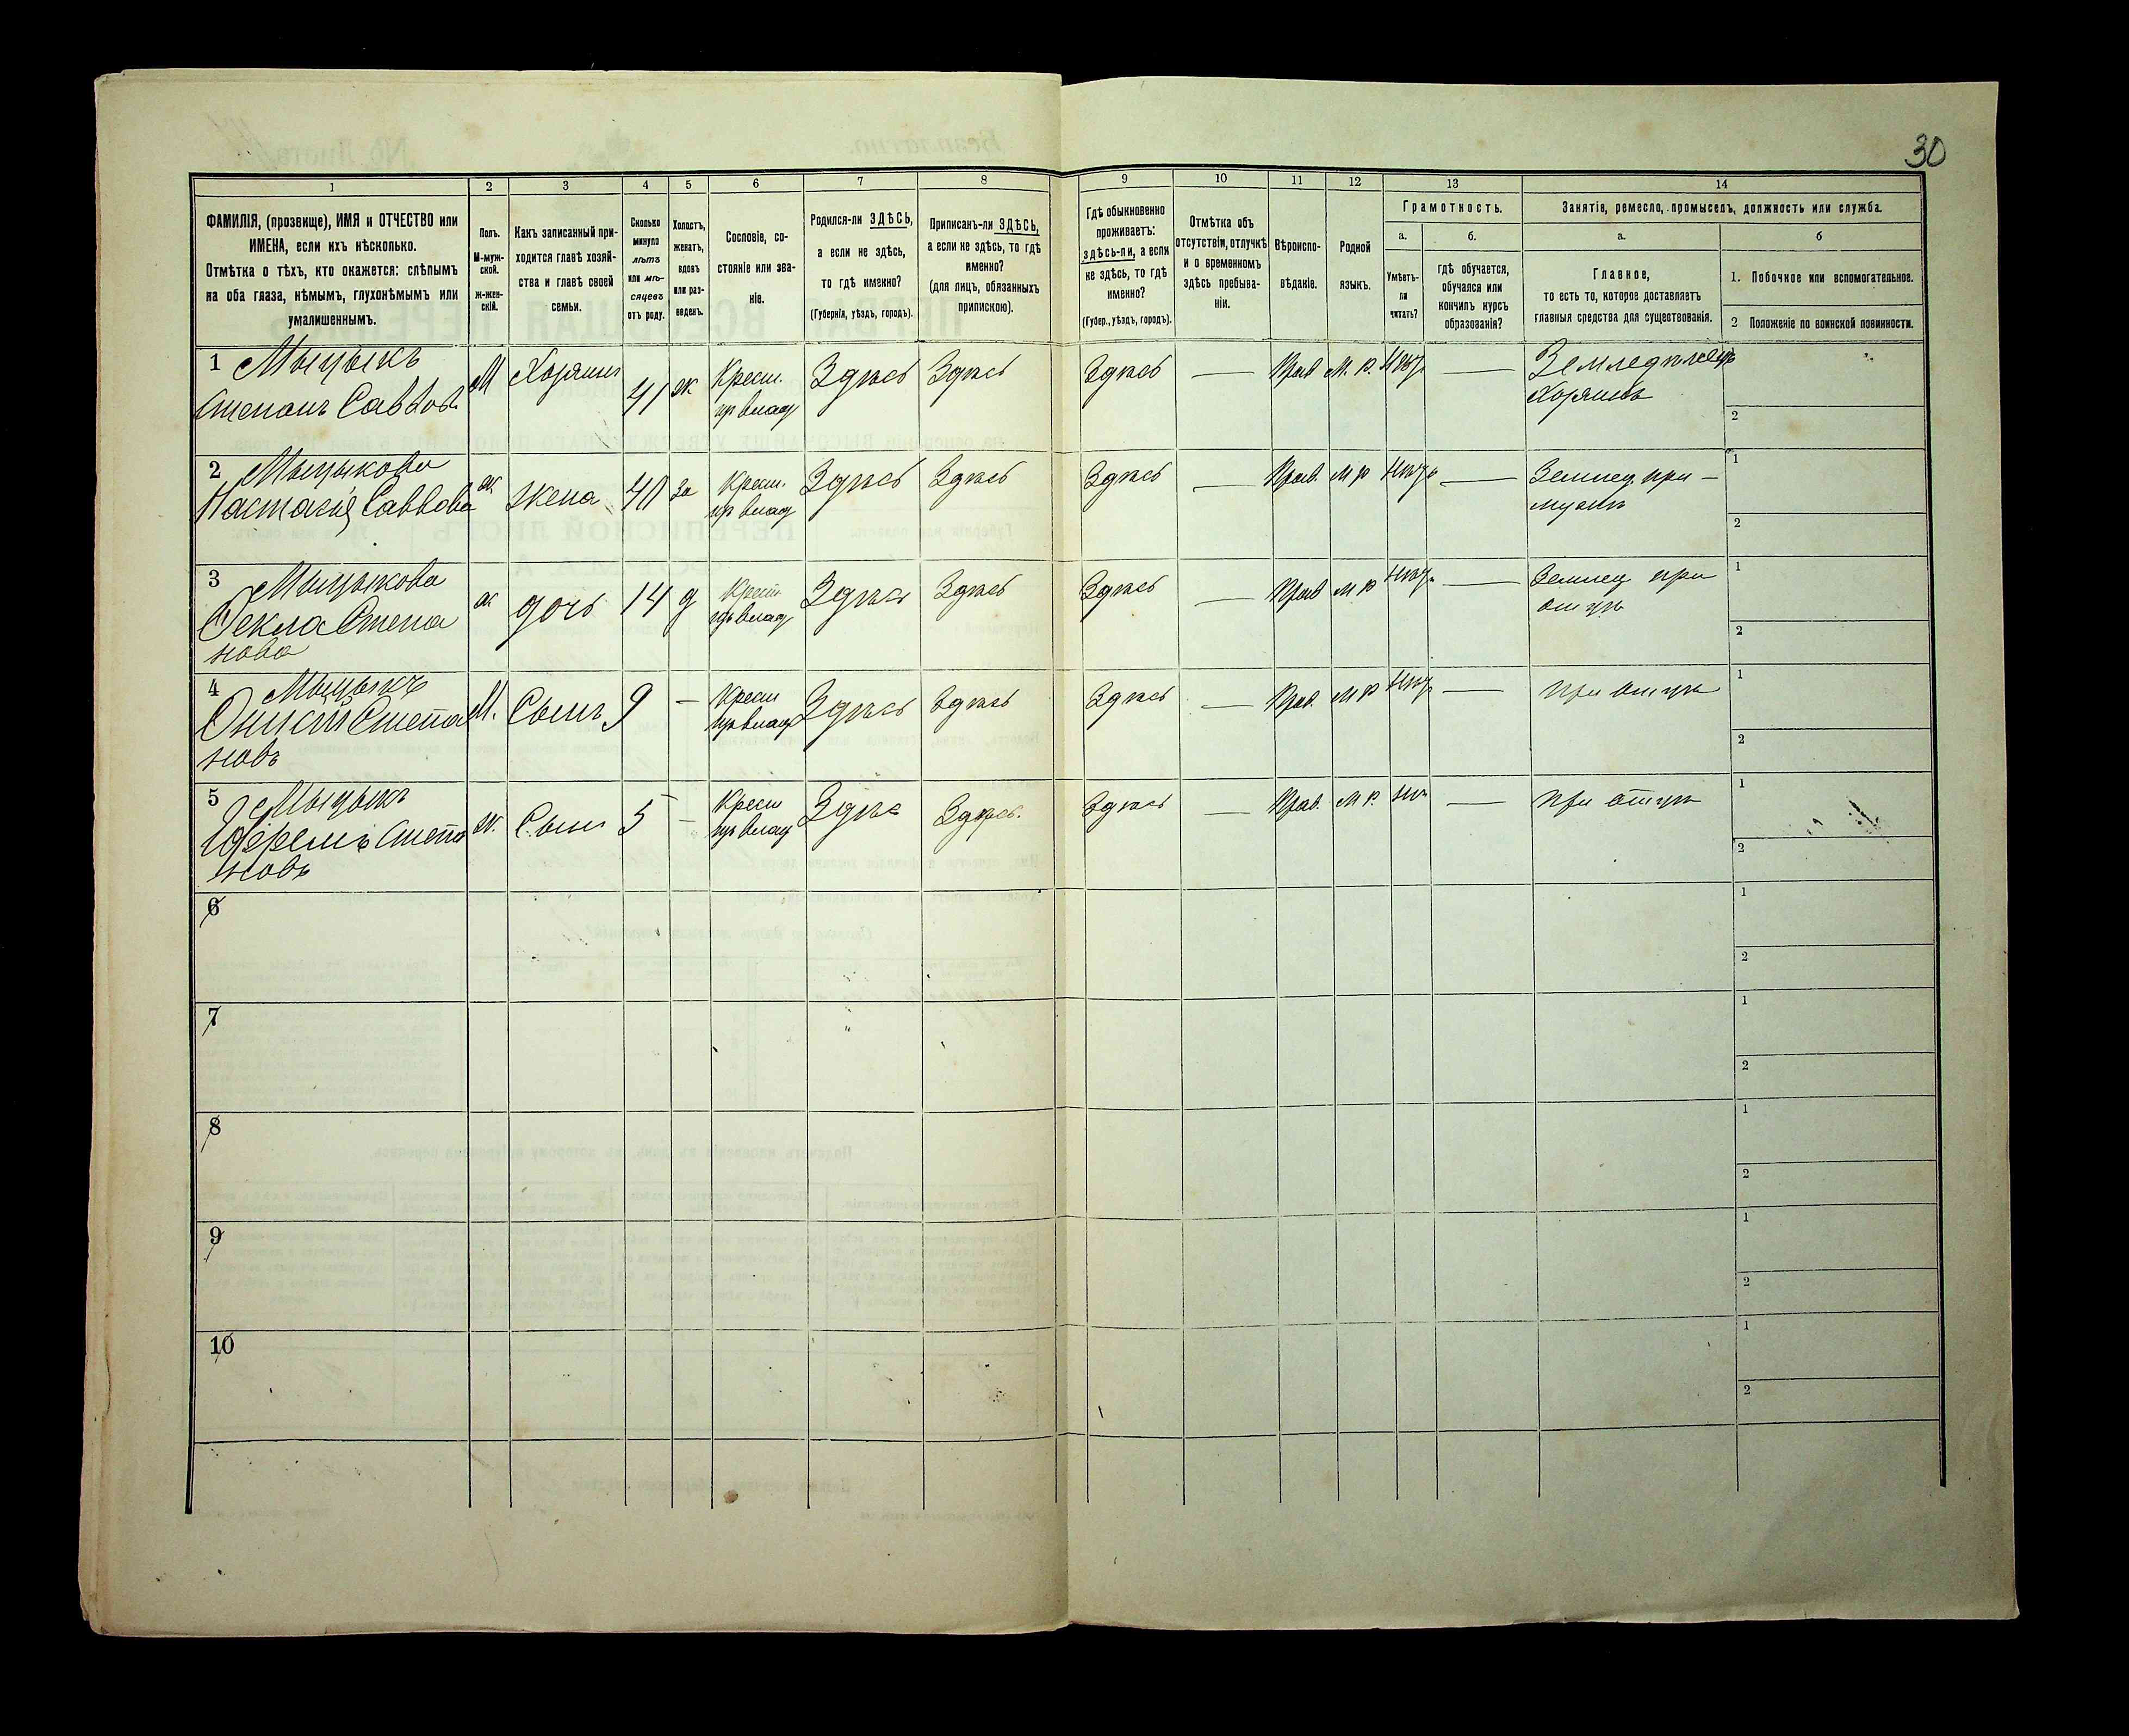 30
1
2
3
4
5
6
7
8
9
10
11
12
13
14
ФАМИЛІЯ, (прозвище), ИМЯ и ОТЧЕСТВО или
ИМЕНА, если ихъ нѣсколько.
Отмѣтка о тѣхъ, кто окажется: слѣпымъ
на оба глаза, нѣмымъ, глухонѣмымъ или
умалишеннымъ.
Полъ.
М-муж-
ской.
ж-жен-
скій.
Какъ записанный при-
ходится главѣ хозяй-
ства и главѣ своей
семьи.
Сколько
минуло
лѣтъ
или мѣ-
сяцевъ
отъ роду.
Холостъ,
женатъ,
вдовъ
или раз-
веденъ.
Сословіе, со-
стояніе или зва-
ніе.
Родился-ли ЗДѢСЬ,
а если не здѣсь,
то гдѣ именно?
(Губернія, уѣздъ, городъ).
Приписанъ-ли ЗДѢСЬ,
а если не здѣсь, то гдѣ
именно?
(для лицъ, обязанныхъ
припискою).
Гдѣ обыкновенно
проживаетъ:
здѣсь-ли, а если
не здѣсь, то гдѣ
именно?
(Губер., уѣздъ, городъ).
Отмѣтка объ
отсутствіи, отлучкѣ
и о временномъ
здѣсь пребыва-
ніи.
Вѣроиспо-
вѣданіе.
Родной
языкъ.
Грамотность.
а.
б.
Умѣетъ-
ли
читать?
гдѣ обучается,
обучался или
кончилъ курсъ
образованія?
Занятіе, ремесло, промыселъ, должность или служба.
а.
б
Главное,
то есть то, которое доставляетъ
главныя средства для существованія.
1. Побочное или вспомогательное.
2 Положеніе по воинской повинности.
1 Мыцыкъ
Степанъ Саввовъ
М Хозяинъ 41 ж Крест. Здѣсь Здѣсь Здѣсь — Прав М. р. —
Земледѣлецъ
Хозяинъ
2
2 Мыцыкова
Настасія Саввова
ж жена 40 за Крест. Здѣсь Здѣсь Здѣсь — Прав. М р —
при
мужѣ
1
2
3 Мыцыкова
Ѳекла Степа
нова
ж дочь 14 д Крест Здѣсь Здѣсь Здѣсь — Прав М р —
при
отцѣ
1
2
4 Мыцыкъ
Степа
новъ
М. Сынъ 9 — Крест Здѣсь Здѣсь Здѣсь — Прав. М р —
при отцѣ
1
2
5 Мыцыкъ
Степа
новъ
Сынъ 5 — Крест Здѣсь Здѣсь. Здѣсь — Прав. М р. —
при отцѣ
1
2
6
1
2
7
1
2
8
1
2
9
1
2
10
1
2